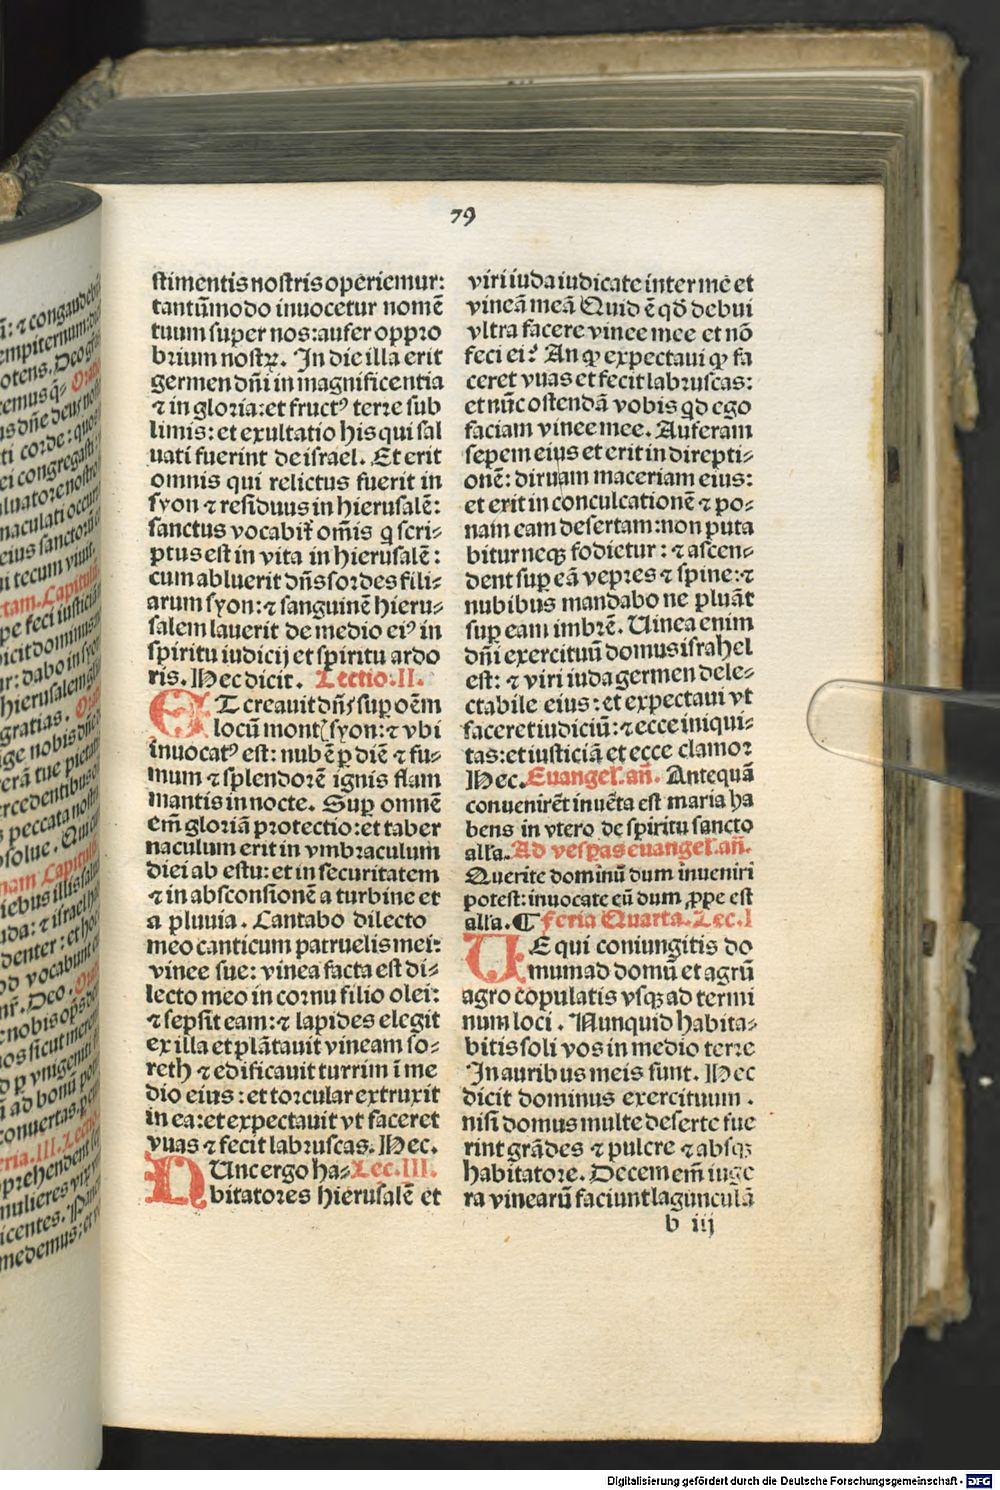 79
stimentis nostris operiemur:
tantũmodo inuocetur nomẽ
tuum super nos:aufer oppro
brium nostrꝝ. In die illa erit
germen dñi in magnificentia
⁊ in gloria:et fructꝰ terre sub
limis: et exultatio his qui sal
uati fuerint de israel. Et erit
omnis qui relictus fuerit in
syon ⁊ residuus in hierusalẽ:
sanctus vocabit̃ om̃is q scri-
ptus est in vita in hierusalẽ:
cum abluerit dñs sordes fili-
arum syon:⁊ sanguinẽ hieru-
salem lauerit de medio eiꝰ in
spiritu iudicij et spiritu ardo
ris. Hec dicit. Lectio.II.
ET creauit dñs sup oẽm
locũ mont(syon:⁊ vbi
inuocatꝰ est: nubẽ p diẽ ⁊ fu-
mum ⁊ splendorẽ ignis flam
mantis in nocte. Sup omnẽ
em̃ gloriã protectio:et taber
naculum erit in vmbraculum
diei ab estu: et in securitatem
⁊ in absconsionẽ a turbine et
a pluuia. Cantabo dilecto
meo canticum patruelis mei:
vinee sue: vinea facta est di-
lecto meo in cornu filio olei:
⁊ sepsit eam:⁊ lapides elegit
ex illa et plãtauit vineam so-
reth ⁊ edificauit turrim ĩ me
dio eius: et torcular extruxit
in ea:et expectauit vt faceret
vuas ⁊ fecit labruscas. Hec.
NUnc ergo ha- Lec.III.
bitatores hierusalẽ et
viri iuda iudicate inter me et
vineã meã Quid ẽ qđ debui
vltra facere vinee mee et nõ
feci ei? An ꝙ expectaui ꝙ fa
ceret vuas et fecit labruscas:
et nũc ostendã vobis qd ego
faciam vinee mee. Auferam
sepem eius et erit in direpti-
onẽ: diruam maceriam eius:
et erit in conculcationẽ ⁊ po-
nam eam desertam:non puta
bitur neqꝫ fodietur: ⁊ ascen-
dent sup eã vepres ⁊ spine:⁊
nubibus mandabo ne pluãt
sup eam imbrẽ. Uinea enim
dñi exercituũ domus israhel
est: ⁊ viri iuda germen dele-
ctabile eius: et expectaui vt
faceret iudiciũ: ⁊ ecce iniqui-
tas:et iusticiã et ecce clamor
Hec. Euangel.añ. Antequã
conuenirẽt inuẽta est maria ha
bens in vtero de spiritu sancto
alla. Ad vespas euangel.añ.
Querite dominũ dum inueniri
potest: inuocate eũ dum ꝓpe est
alla. ¶ feria Quarta. Lec.I
UE qui coniungitis do
mum ad domũ et agrũ
agro copulatis vsqꝫ ad termi
num loci. Nunquid habita-
bitis soli vos in medio terre
In auribus meis sunt. Hec
dicit dominus exercituum.
nisi domus multe deserte fue
rint grãdes ⁊ pulcre ⁊ absqꝫ
habitatore. Decem em̃ iuge
ra vinearũ faciunt lagunculã
b iij
Digitalisierung gefördert durch die Deutsche Forschungsgemeinschaft - DFG